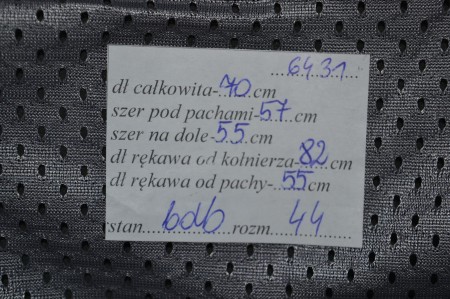 ...6431...
dł całkowita-70cm
szer pod pachami-57cm
szer na dole-55cm
dł rękawa od kołnierza-82cm
dł rękawa od pachy-55cm
stan....bdb....rozm....44....